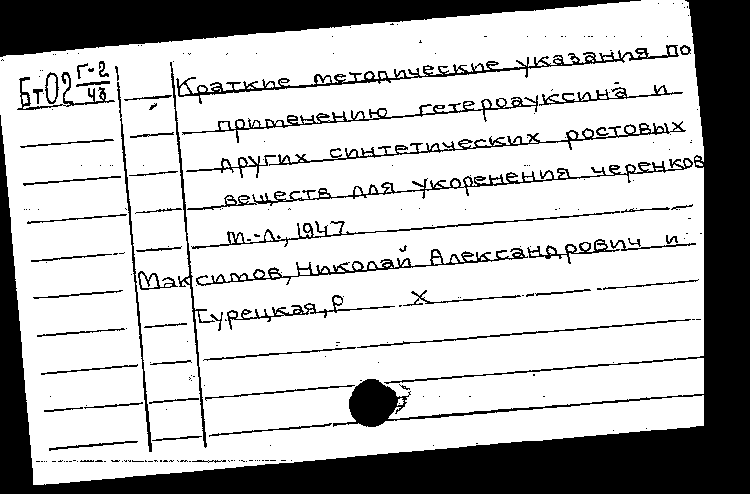 БтО2 Г-2/48
Краткие методические указания по
применению гетероауксина и
других синтетических ростовых
веществ для укоренения черенков
м.-л., 1947.
Максимов, Николай Александрович и
Турецкая, Р Х